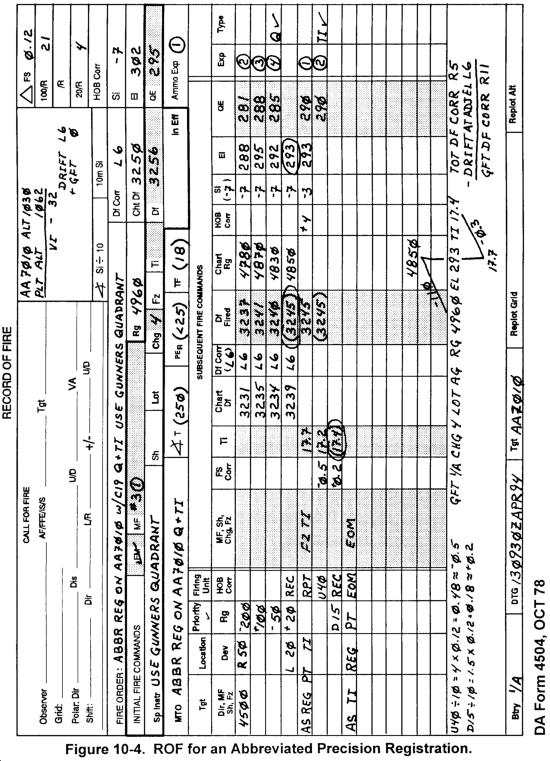 RECORD OF FIRE
CALL FOR FIRE
Observer AF/FFE/IS/S Tgt
Grid:
Polar: Dir Dis U/D VA
Shift: Dir L/R +/- U/D
AA7Ø1Ø ALT 1Ø3Ø
PLT ALT 1Ø62
VI - 32
DRIFT L6
+ GFT Ø
∡ Si ÷ 10 10m Si
△ FS Ø.12
100/R 21
/R
20/R 4
HOB Corr
FIRE ORDER: ABBR REG ON AA7Ø1Ø W/C19 Q+TI USE GUNNERS QUADRANT
Df Corr L6 Si -7
INITIAL FIRE COMMANDS FM MF #3① Rg 496Ø Cht Df 325Ø El 3Ø2
Sp Instr USE GUNNERS QUADRANT Sh Lot Chg 4 Fz Ti Df 3256 QE 295
MTO ABBR REG ON AA7Ø1Ø Q+TI ∡ T (25Ø) PER (<25) TF (18) In Eff Ammo Exp ①
Tgt Location Priority Firing Unit SUBSEQUENT FIRE COMMANDS
Dir, MF Sh, Fz Dev Rg HOB Corr MF, Sh, Chg, Fz FS Corr Ti Chart Df Df Corr (L6) Df Fired Chart Rg HOB Corr Si (-7) El QE Exp Type
45ØØ R 5Ø -2ØØ 3231 L6 3237 478Ø -7 288 281 ②
+1ØØ 3235 L6 3241 487Ø -7 295 288 ③
-5Ø 3234 L6 324Ø 483Ø -7 292 285 ④ Q✓
L 2Ø +2Ø REC 3239 L6 (3245) 485Ø -7 (293)
AS REG PT TI RPT FZ TI 17.7 3245 +4 -3 293 29Ø ①
U4Ø -Ø.5 17.2 (3245) 29Ø ② TI✓
D15 REC +Ø.2 (17.4)
AS TI REG PT EOM EOM
U4Ø ÷ 1Ø = 4 x Ø.12 = Ø.48 ≈ -Ø.5
D15 ÷ 1Ø = 1.5 x Ø.12 = Ø.18 ≈ +Ø.2
GFT 1/A CHG 4 LOT AG RG 496Ø EL 293 TI 17.4
TOT DF CORR R5
- DRIFT AT ADJ EL L6
GFT DF CORR R11
485Ø
-11Ø
17.7
-Ø.3
Btry 1/A DTG 13Ø93ØZAPR94 Tgt AA7Ø1Ø Replot Grid Replot Alt
DA Form 4504, OCT 78
Figure 10-4. ROF for an Abbreviated Precision Registration.